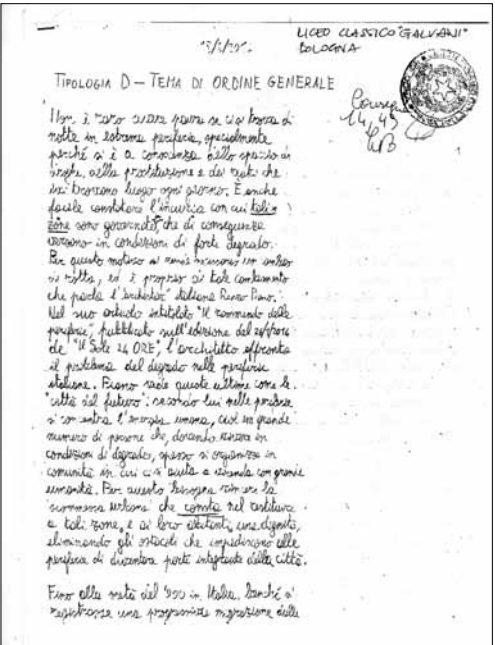 LICEO CLASSICO "GALVANI"
BOLOGNA
TIPOLOGIA D – TEMA DI ORDINE GENERALE
14,45
Non è raro avere paura se ci si trova di
notte in estrema periferia, specialmente
perché si è a conoscenza dello spaccio di
droghe, della prostituzione e dei reati che
ivi trovano luogo ogni giorno. È anche
facile constatare l'incuria con cui tali
zone sono governate, che di conseguenza
vergono in condizioni di forte degrado.
Per questo motivo si
di rotta, ed è proprio di tale cambiamento
che parla l'architetto italiano Renzo Piano.
Nel suo articolo intitolato "Il rammendo delle
periferie", pubblicato sull'edizione del
de "Il Sole 24 ORE", l'architetto affronta
il problema del degrado nelle periferie
italiane. Piano vede queste ultime come le
"città del futuro": secondo lui nelle periferie
si concentra l'energia umana, cioè un grande
numero di persone che, dovendo vivere in
condizioni di degrado, spesso si organizza in
comunità in cui ci si aiuta a vicenda con grande
umanità. Per questo bisogna vincere la
scommessa urbana che consta nel restituire
a tali zone, e ai loro abitanti, una dignità,
eliminando gli ostacoli che impediscono alle
periferie di diventare parte integrante della città.
Fino alla metà del '900 in Italia, benché si
registrasse una progressiva migrazione dalle